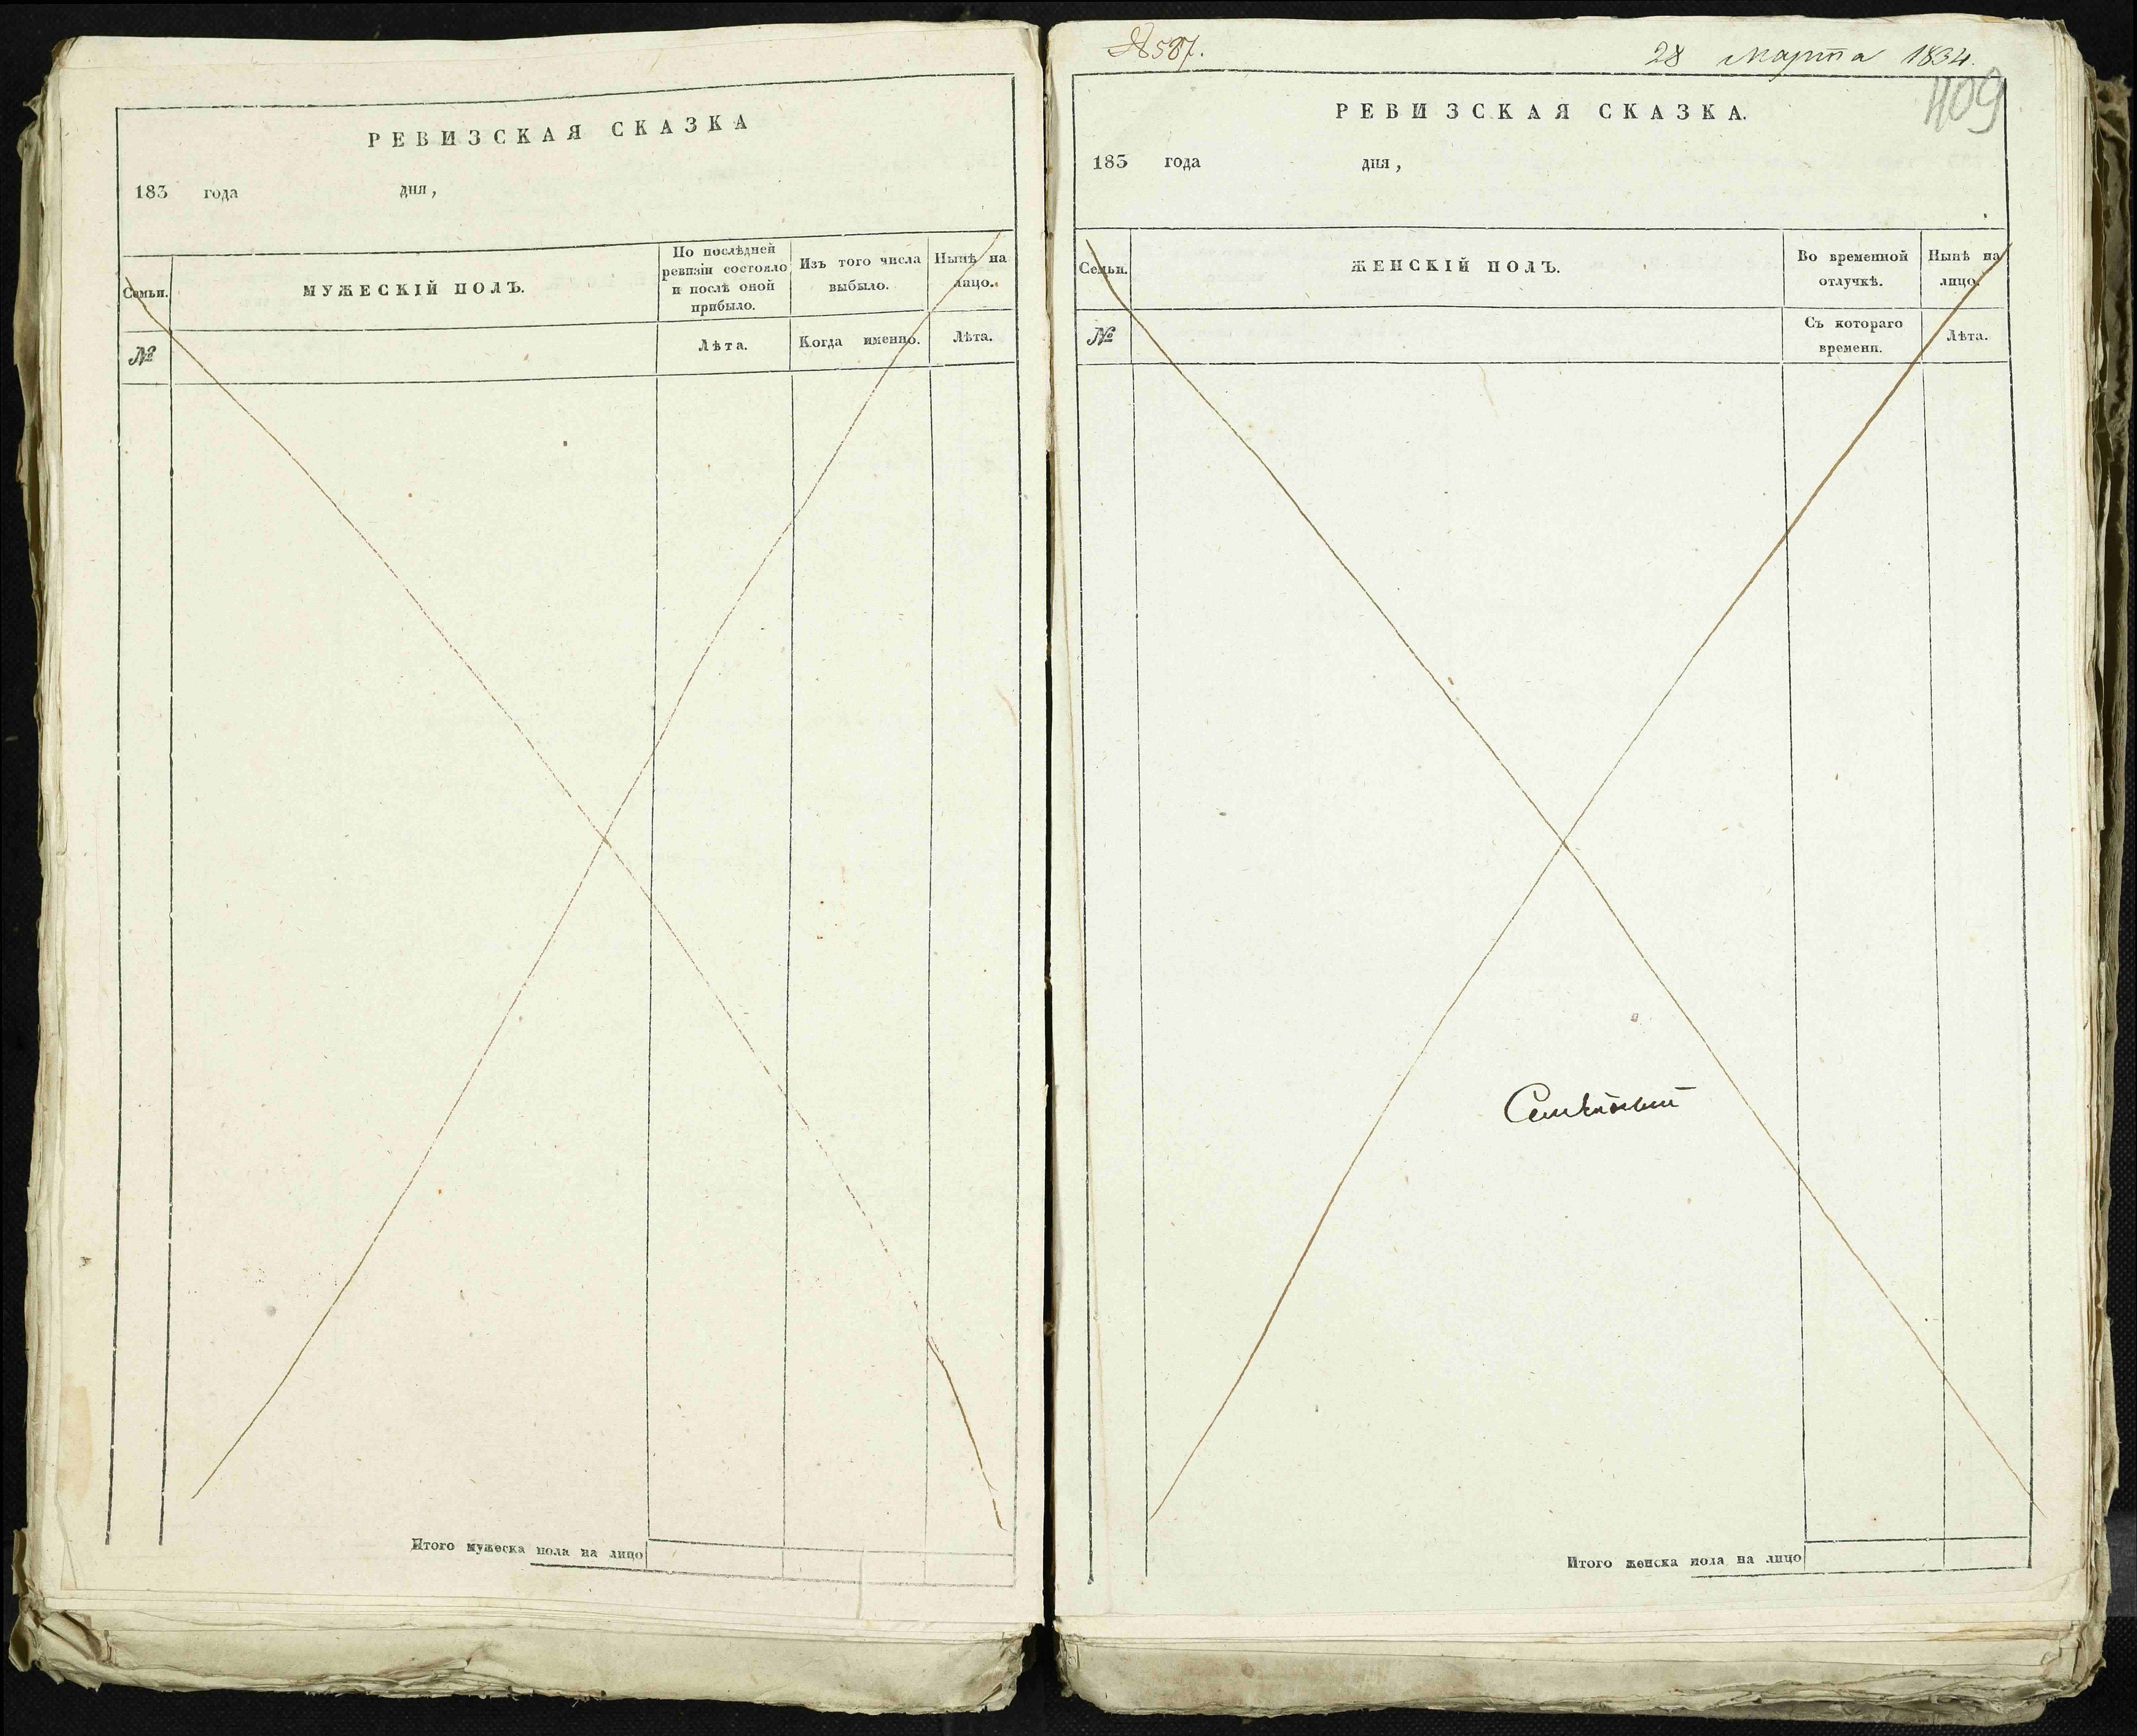 РЕВИЗСКАЯ СКАЗКА
183 года дня,
Семьи.
МУЖЕСКІЙ ПОЛЪ.
По послѣдней ревизіи состояло и послѣ оной прибыло.
Изъ того числа выбыло.
Нынѣ на лицо.
№
Лѣта.
Когда именно.
Лѣта.
Итого мужеска пола на лицо
28 Марта 1834.
409
РЕВИЗСКАЯ СКАЗКА.
183 года дня,
Семьи.
ЖЕНСКІЙ ПОЛЪ.
Во временной отлучкѣ.
Нынѣ на лицо.
№
Съ котораго времени.
Лѣта.
Итого женска пола на лицо